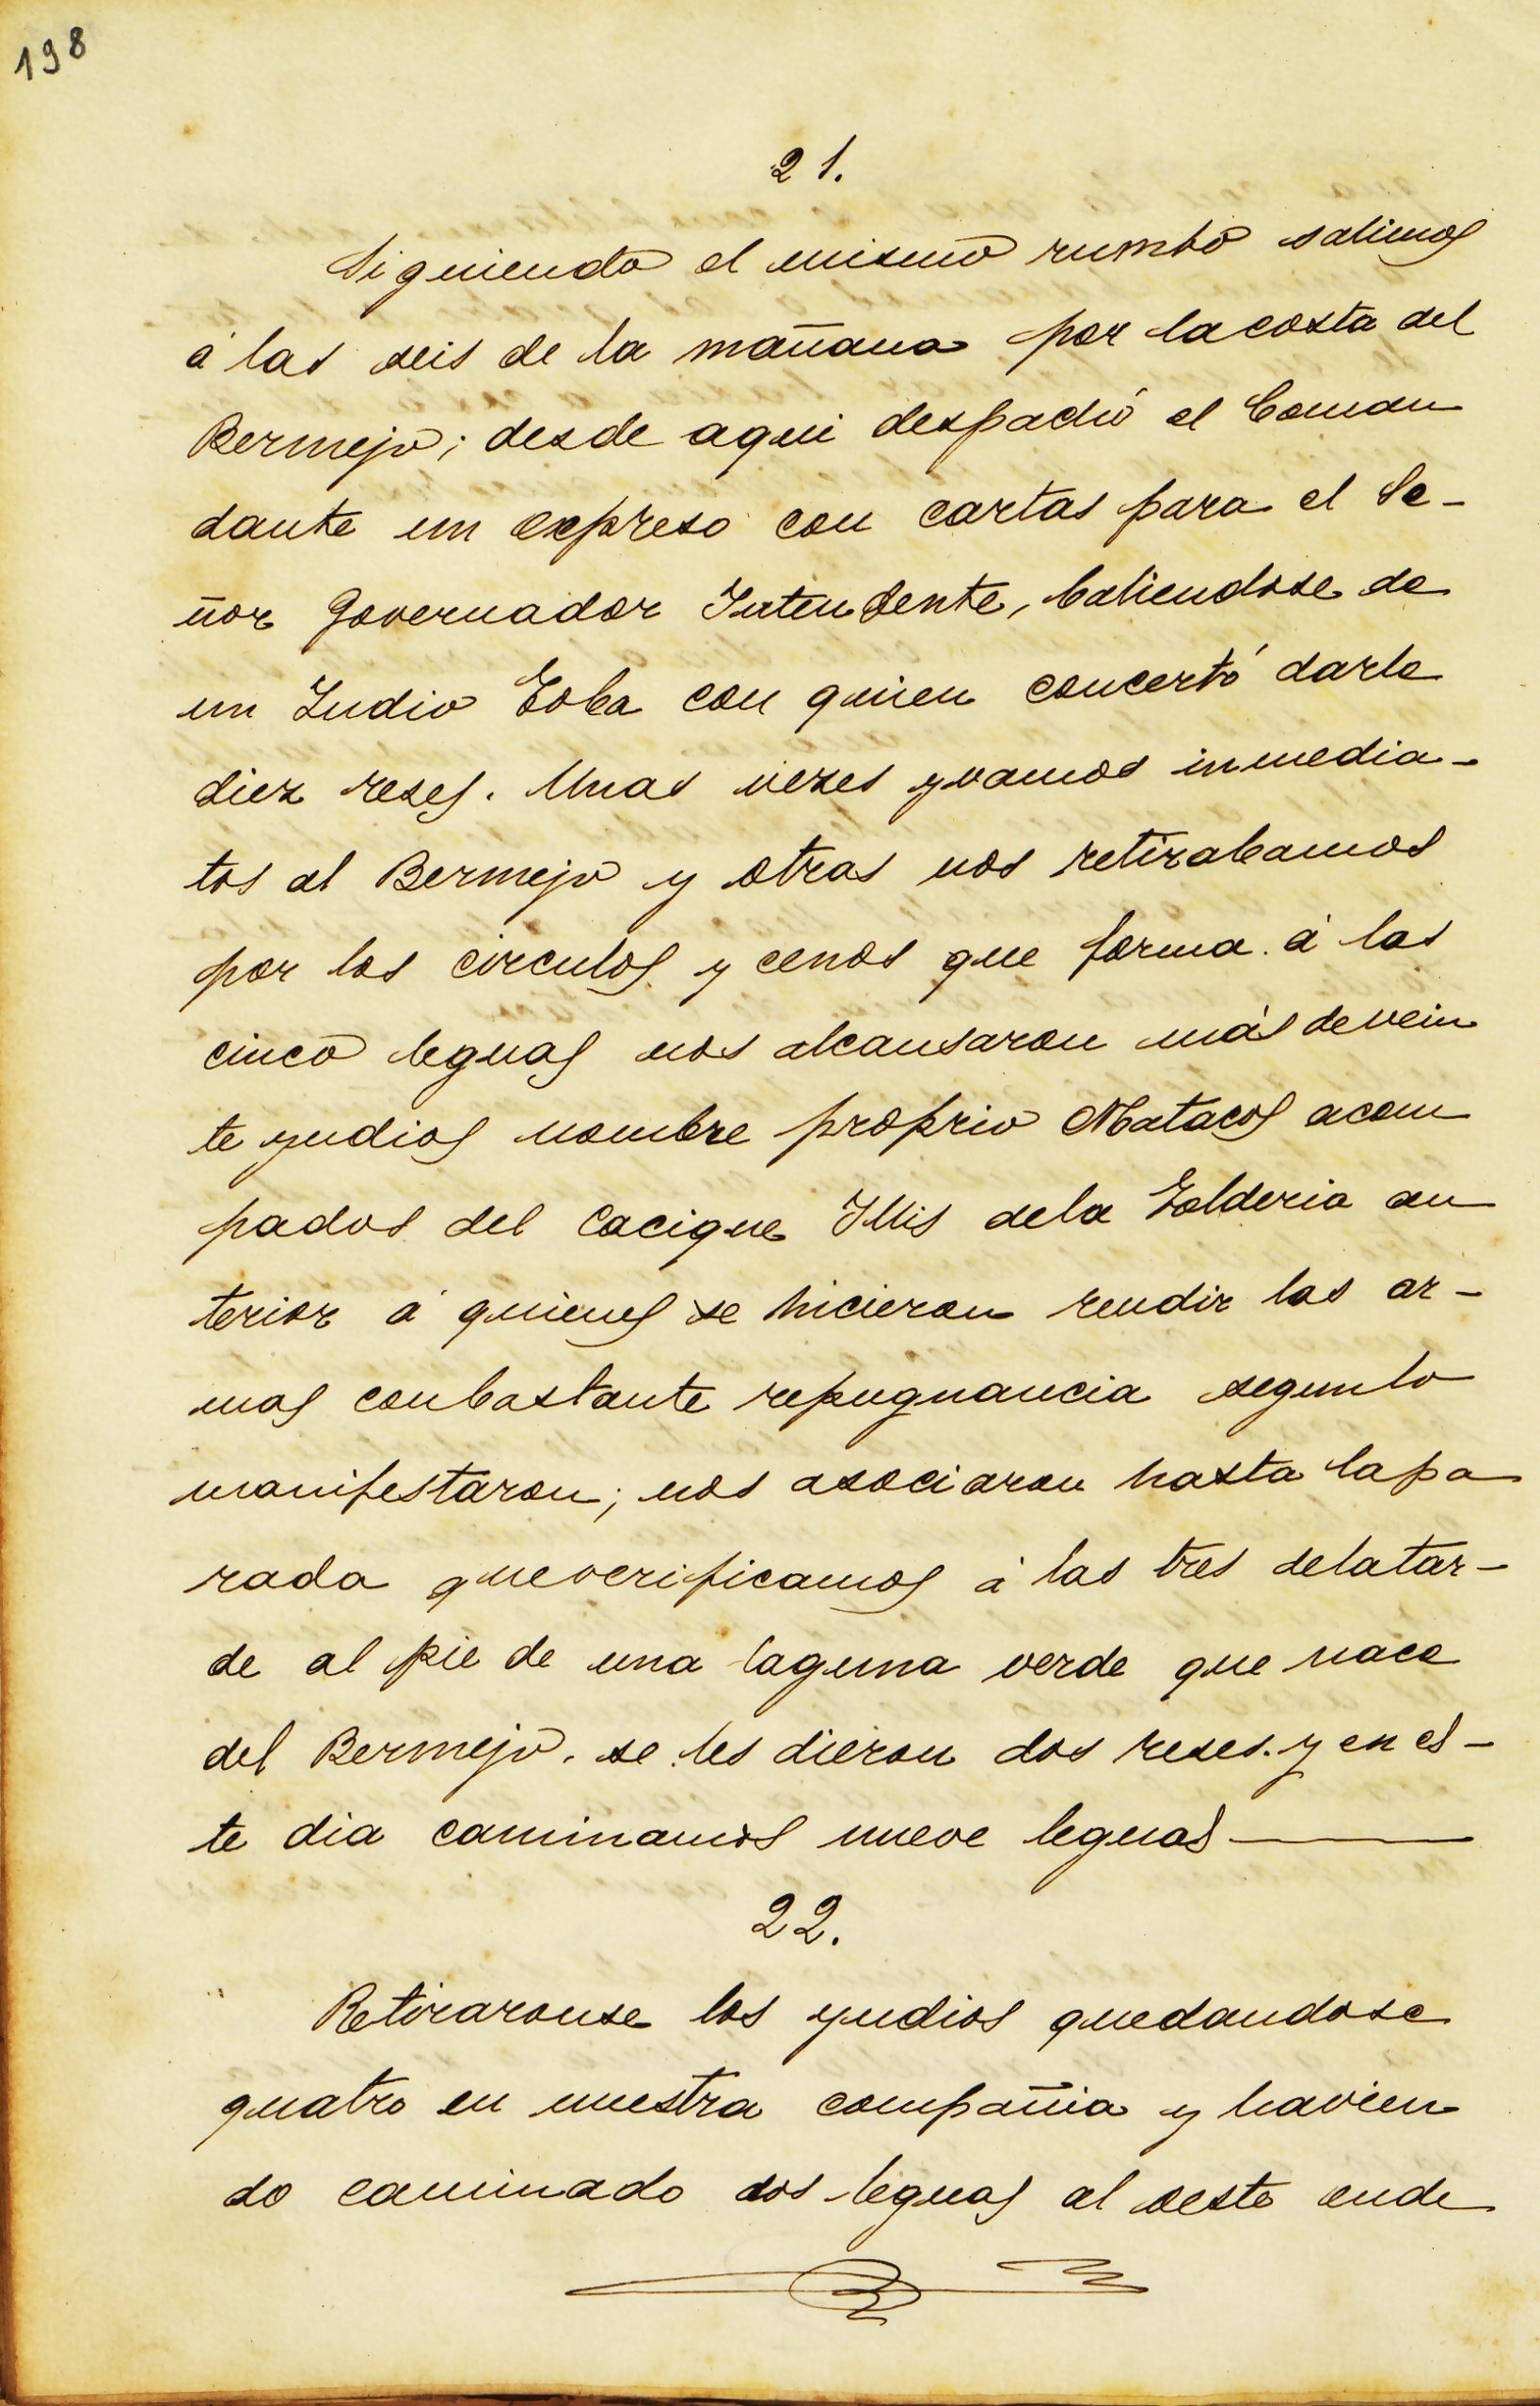 198
21.
Siguiendo el mismo rumbo salimos
á las seis de la mañana por lacosta del
Bermejo; desde aqui despachó el Coman
dante un expreso con cartas para el Se-
ñor Governador Intendente, baliendose de
un Indio Toba con quien concertó darle
diez reses. Unas vezes yvamos inmedia-
tos al Bermejo y otras nos retirabamos
por los circulos y cenos que forma. á las
cinco leguas nos alcansaron más devein
te yndios nombre proprio Matacos acom
pados del Cacique Illis dela Tolderia an
terior á quienes se hicieron rendir las ar-
mas conbastante repugnancia segunlo
manifestaron; nos asociaron hasta lapa
rada queverificamos á las tres delatar-
de al pie de una laguna verde que nace
del Bermejo. se les dieron dos reses. y en es-
te dia caminamos nueve leguas
22.
Retiraronse los yndios quedandose
quatro en nuestra compañia y havien
do caminado dos leguas al oeste ende